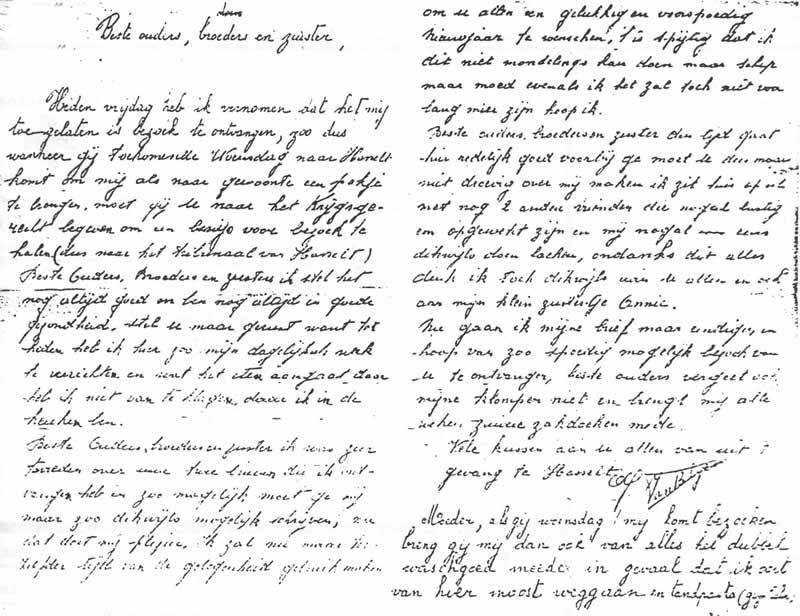 Beste ouders, broeders en zuster,
Heden vrijdag heb ik vernomen dat het mij
toegelaten is bezoek te ontvangen, zoo dus
wanneer gij toekomende Woensdag naar Hasselt
komt om mij als naar gewoonte een pakje
te brengen, moet gij U naar het Krijgsge-
recht begeven om een bewijs voor bezoek te
halen (dus naar het tribunaal van Hasselt)
Beste Ouders, Broeders en zusters ik stel het
nog altijd goed en ben nog altijd in goede
gezondheid, stel U maar gerust want tot
heden heb ik hier zoo mijn dagelijks werk
te verrichten en wat het eten aangaat daar
heb ik niet van te klagen daar ik in de
keuken ben.
Beste Ouders, broeders en zuster ik was zeer
tevreden over uwe twee brieven die ik ont-
vangen heb en zoo mogelijk moet ge mij
maar zoo dikwijls mogelijk schrijven,
dat doet mij plezier. Ik zal nu maar
tijd van de gelegenheid gebruik maken
om U allen een gelukkig en voorspoedig
Nieuwjaar te wenschen, 't is spijtig dat ik
dit niet mondelings kan doen maar schep
maar moed evenals ik het zal toch niet
lang meer zijn hoop ik.
Beste ouders, broeders en zuster den tijd gaat
hier redelijk goed voorbij ge moet U dus maar
niet droevig over mij maken ik zit hier op cel
met nog 2 ander vrienden die nogal lustig
en opgewekt zijn en mij nogal eens
dikwijls doen lachen, ondanks dit alles
denk ik toch dikwijls aan U allen en ook
aan mijn klein zustertje Annie.
Nu gaan ik mijne brief maar eindigen, en
hoop van zoo spoedig mogelijk bezoek van
U te ontvangen, beste ouders vergeet ook
mijne klompen niet en brengt mij alle
weken zuivere zakdoeken mede.
Vele kussen aan U allen van uit 't
gevang te Hasselt
Moeder, als gij woensdag mij komt bezoeken
breng gij mij dan ook van alles het dubbel
waschgoed meede in geval dat ik ooit
van hier moest weggaan en tandpasta